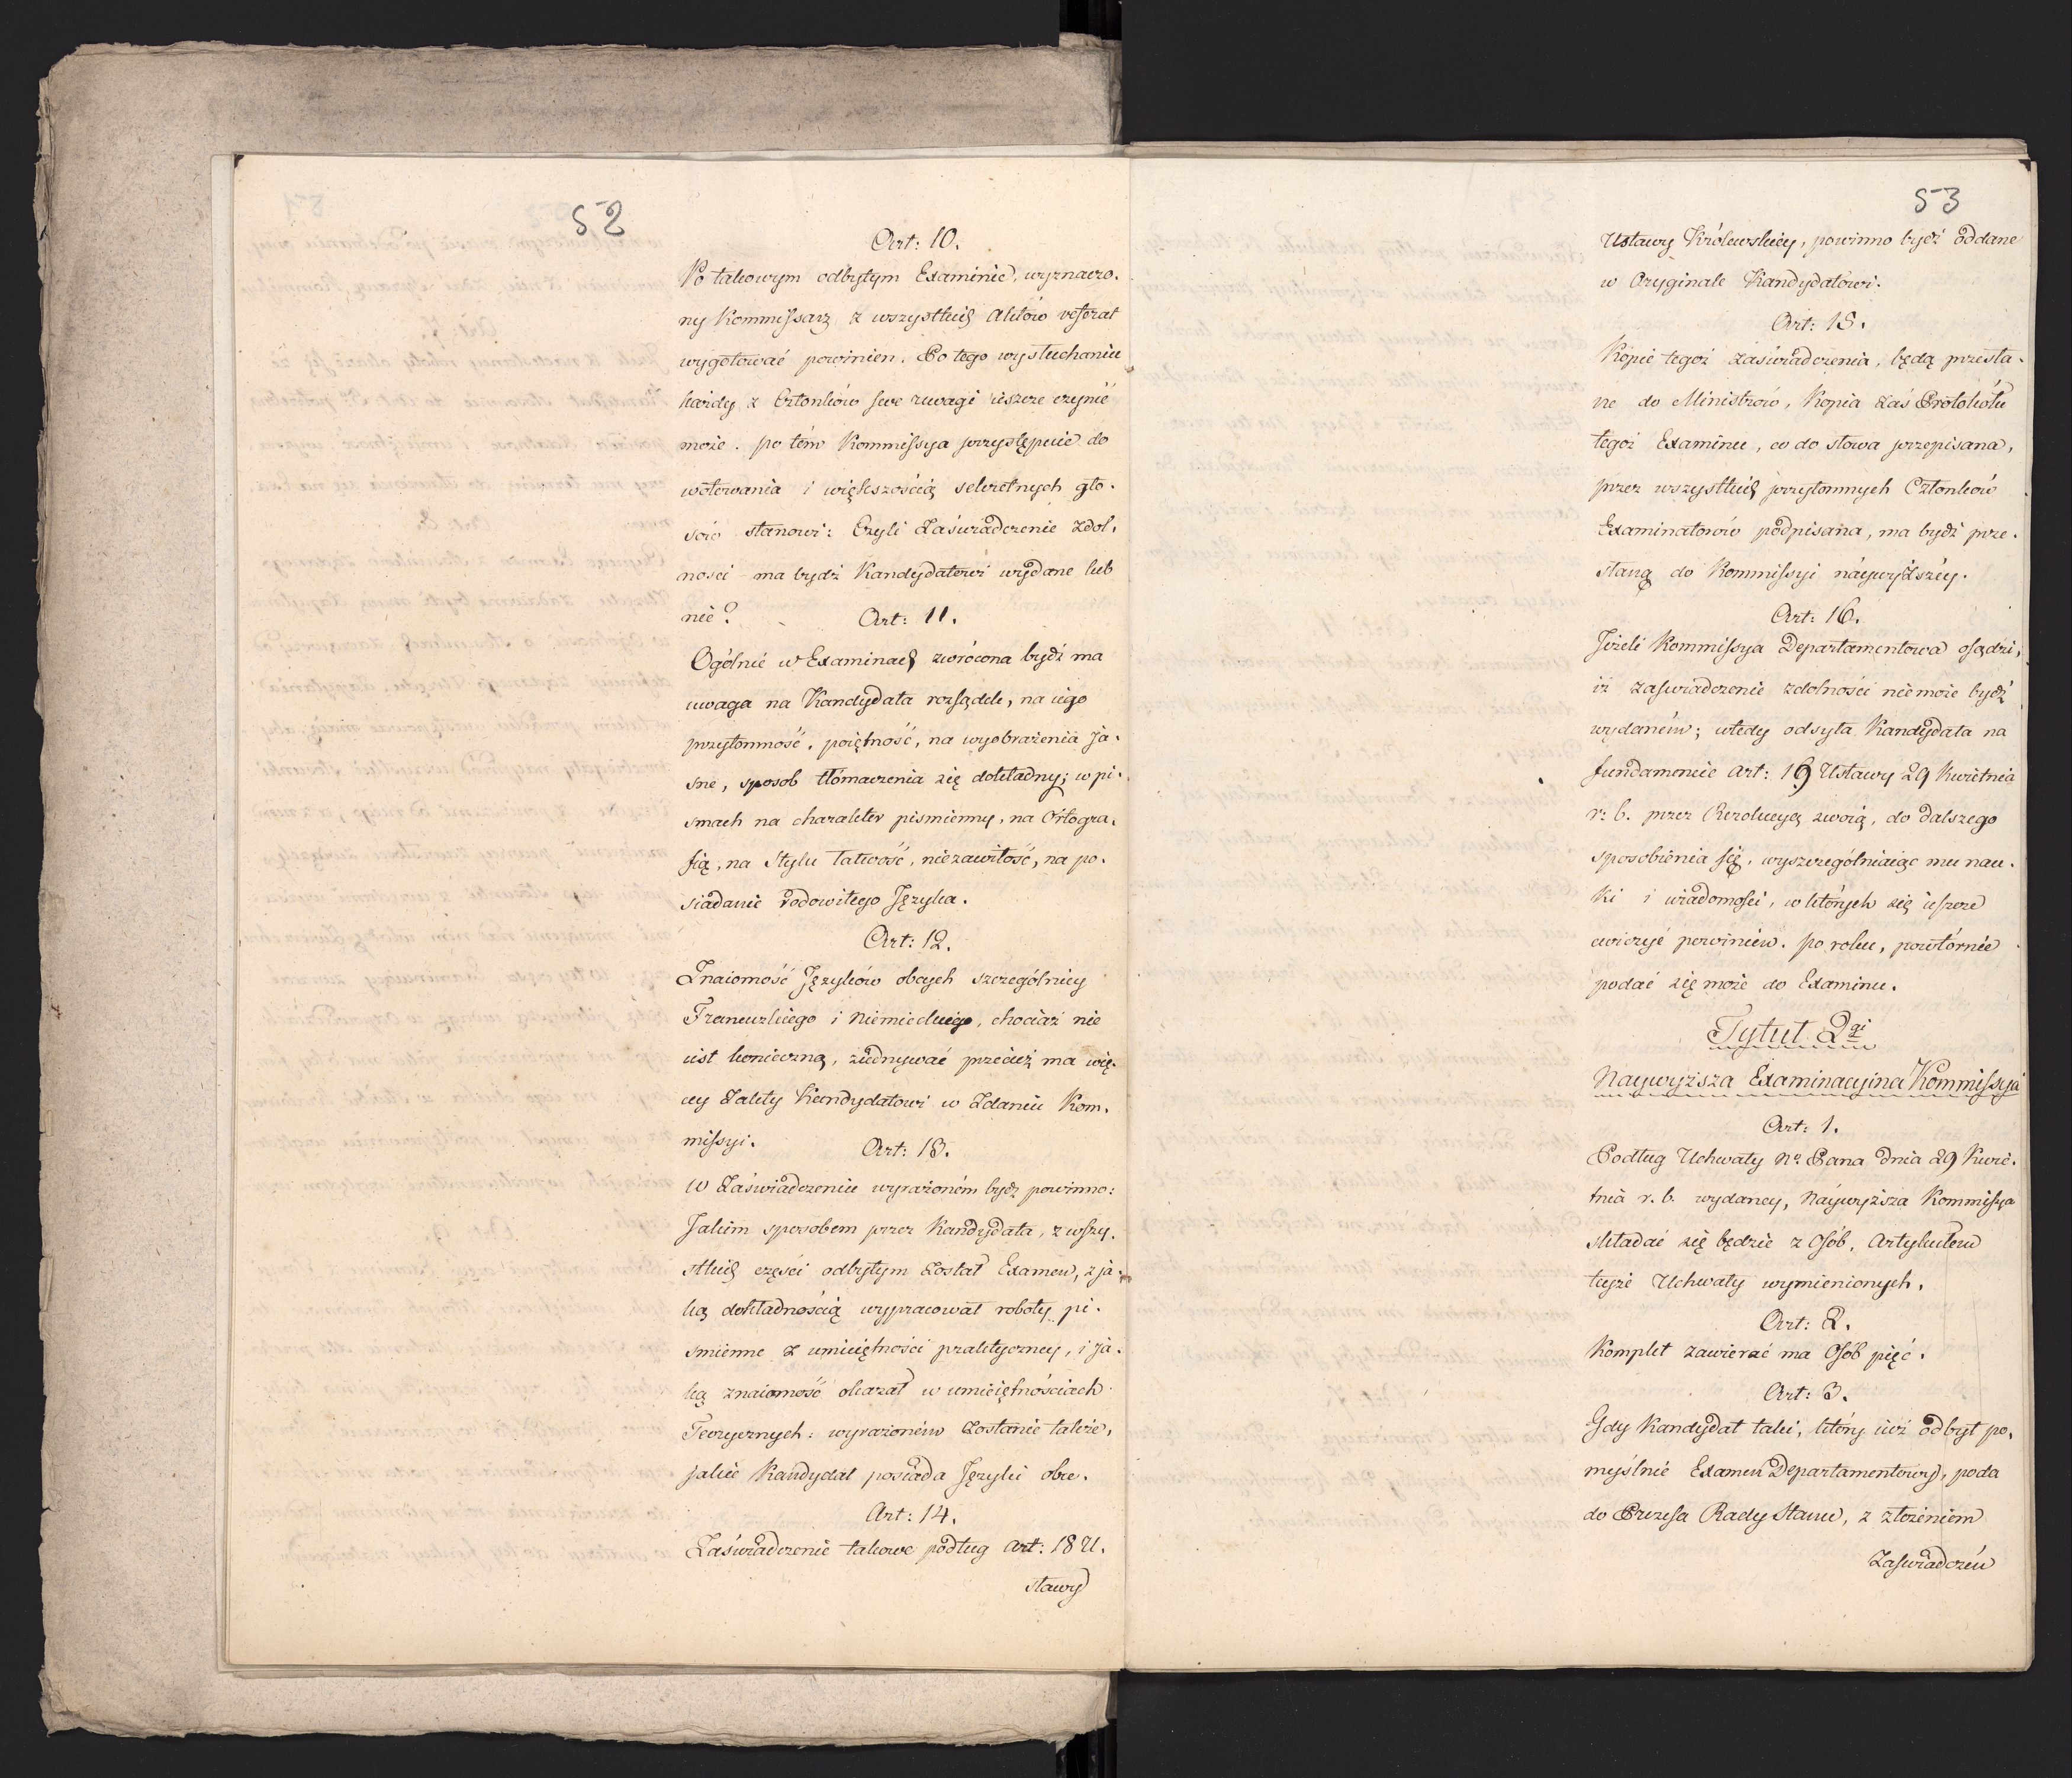 52
Art: 10.
Po takowym odbytym Examinie, wyznaczo-
ny Kommissarz z wszystkich Aktów referat
wygotować powinien. Po tego wysłuchaniu
każdy z Członków swe uwagi ieszcze czynić
może. po tém Kommissya przystępuie do
wotowania i większością sekretnych gło-
sów stanowi: Czyli Zaświadczenie zdol-
ności ma bydź Kandydatowi wydane lub
nie?
Art: 11.
Ogólnie w Examinach zwrócona bydź ma
uwaga na Kandydata rozsądek, na iego
przytomność, poiętność, na wyobrażenia ja-
sne, sposob tłómaczenia się dokładny; w pi-
smach na charakter pismienny, na Ortogra-
fią, na Stylu łatwość, niezawiłość, na po-
siadanie rodowitego Języka.
Art: 12.
Znaiomość Języków obcych szczególniey
Francuzkiego i Niemieckiego, chociaż nie
iest konieczną, zjednywać przecież ma wię-
cey Zalety Kandydatowi w Zdaniu Kom-
missyi.
Art: 13.
W Zaświadczeniu wyrażoném bydź powinno:
Jakim sposobem przez Kandydata, z wszy-
stkich części odbytym Został Examen, z ja-
ką dokładnością wypracował roboty pi-
smienne z umieiętności praktyczney, i ja-
ką znaiomość okazał w umieiętnościach
Teorycznych: wyrażoném Zostanie także,
jakie Kandydat posiada Języki obce.
Art: 14.
Zaświadczenie takowe podług Art: 18 U-
stawy
53
Ustawy Królewskiey, powinno bydź oddane
w Oryginale Kandydatowi.
Art: 15.
Kopie tegoż zaświadczenia, będą przesła-
ne do Ministrów, Kopia zaś Protokółu
tegoż Examinu, co do słowa przepisana,
przez wszystkich przytomnych Członków
Examinatorów podpisana, ma bydź prze-
słaną do Kommissyi náywyższéy.
Art: 16.
Jeżeli Kommissya Departamentowa osądzi,
iż zaswiadczenie zdolności nie może bydź
wydaném; wtedy odsyła Kandydata na
fundamencie Art: 19 Ustawy 29 Kwietnia
r: b. przez Rezolucyą swoią, do dalszego
sposobienia się, wyszczególniaiąc mu nau-
ki i wiadomości, w których się ieszcze
cwiczyć powinien. po roku, powtórnie
podać się może do Examinu.
Tytuł 2gi
Naywyższa Examinacyina Kommissya
Art: 1.
Podług Uchwały Nº Pana dnia 29 Kwie-
tnia r. b. wydaney, Náywyższa Kommissya
składać się będzie z Osób, Artykułem
teyże Uchwały wymienionych.
Art: 2.
Komplet zawierać ma Osób pięć.
Art: 3.
Gdy Kandydat taki, który iuż odbył po-
myślnie Examen Departamentowy, poda
do Prezesa Rady Stanu, z złożeniem
Zaswiadczeń